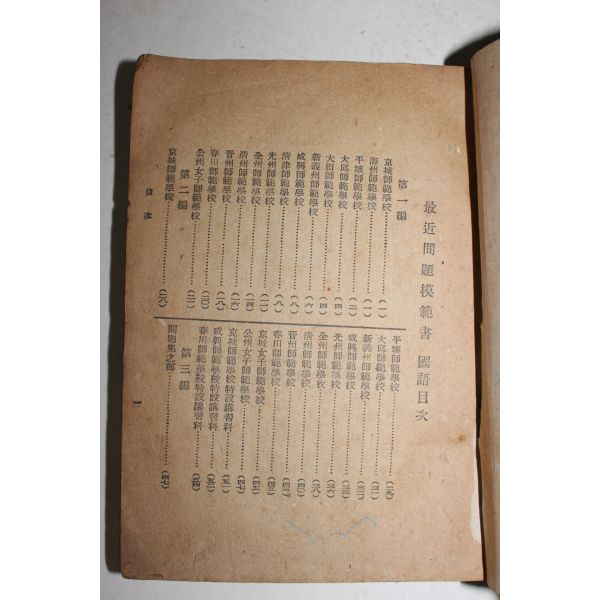 最近問題模範書 國語目次
第一編
京城師範學校
海州師範學校
平壤師範學校
大邱師範學校
大田師範學校
新義州師範學校
咸興師範學校
清津師範學校
光州師範學校
全州師範學校
清州師範學校
晋州師範學校
春川師範學校
公州女子師範學校
第二編
京城師範學校
平壤師範學校
大邱師範學校
新義州師範學校
咸興師範學校
光州師範學校
全州師範學校
清州師範學校
晋州師範學校
春川師範學校
京城女子師範學校
公州女子師範學校
京城師範學校特設講習科
咸興師範學校特設講習科
春川師範學校特設講習科
第三編
問題集之部
目次